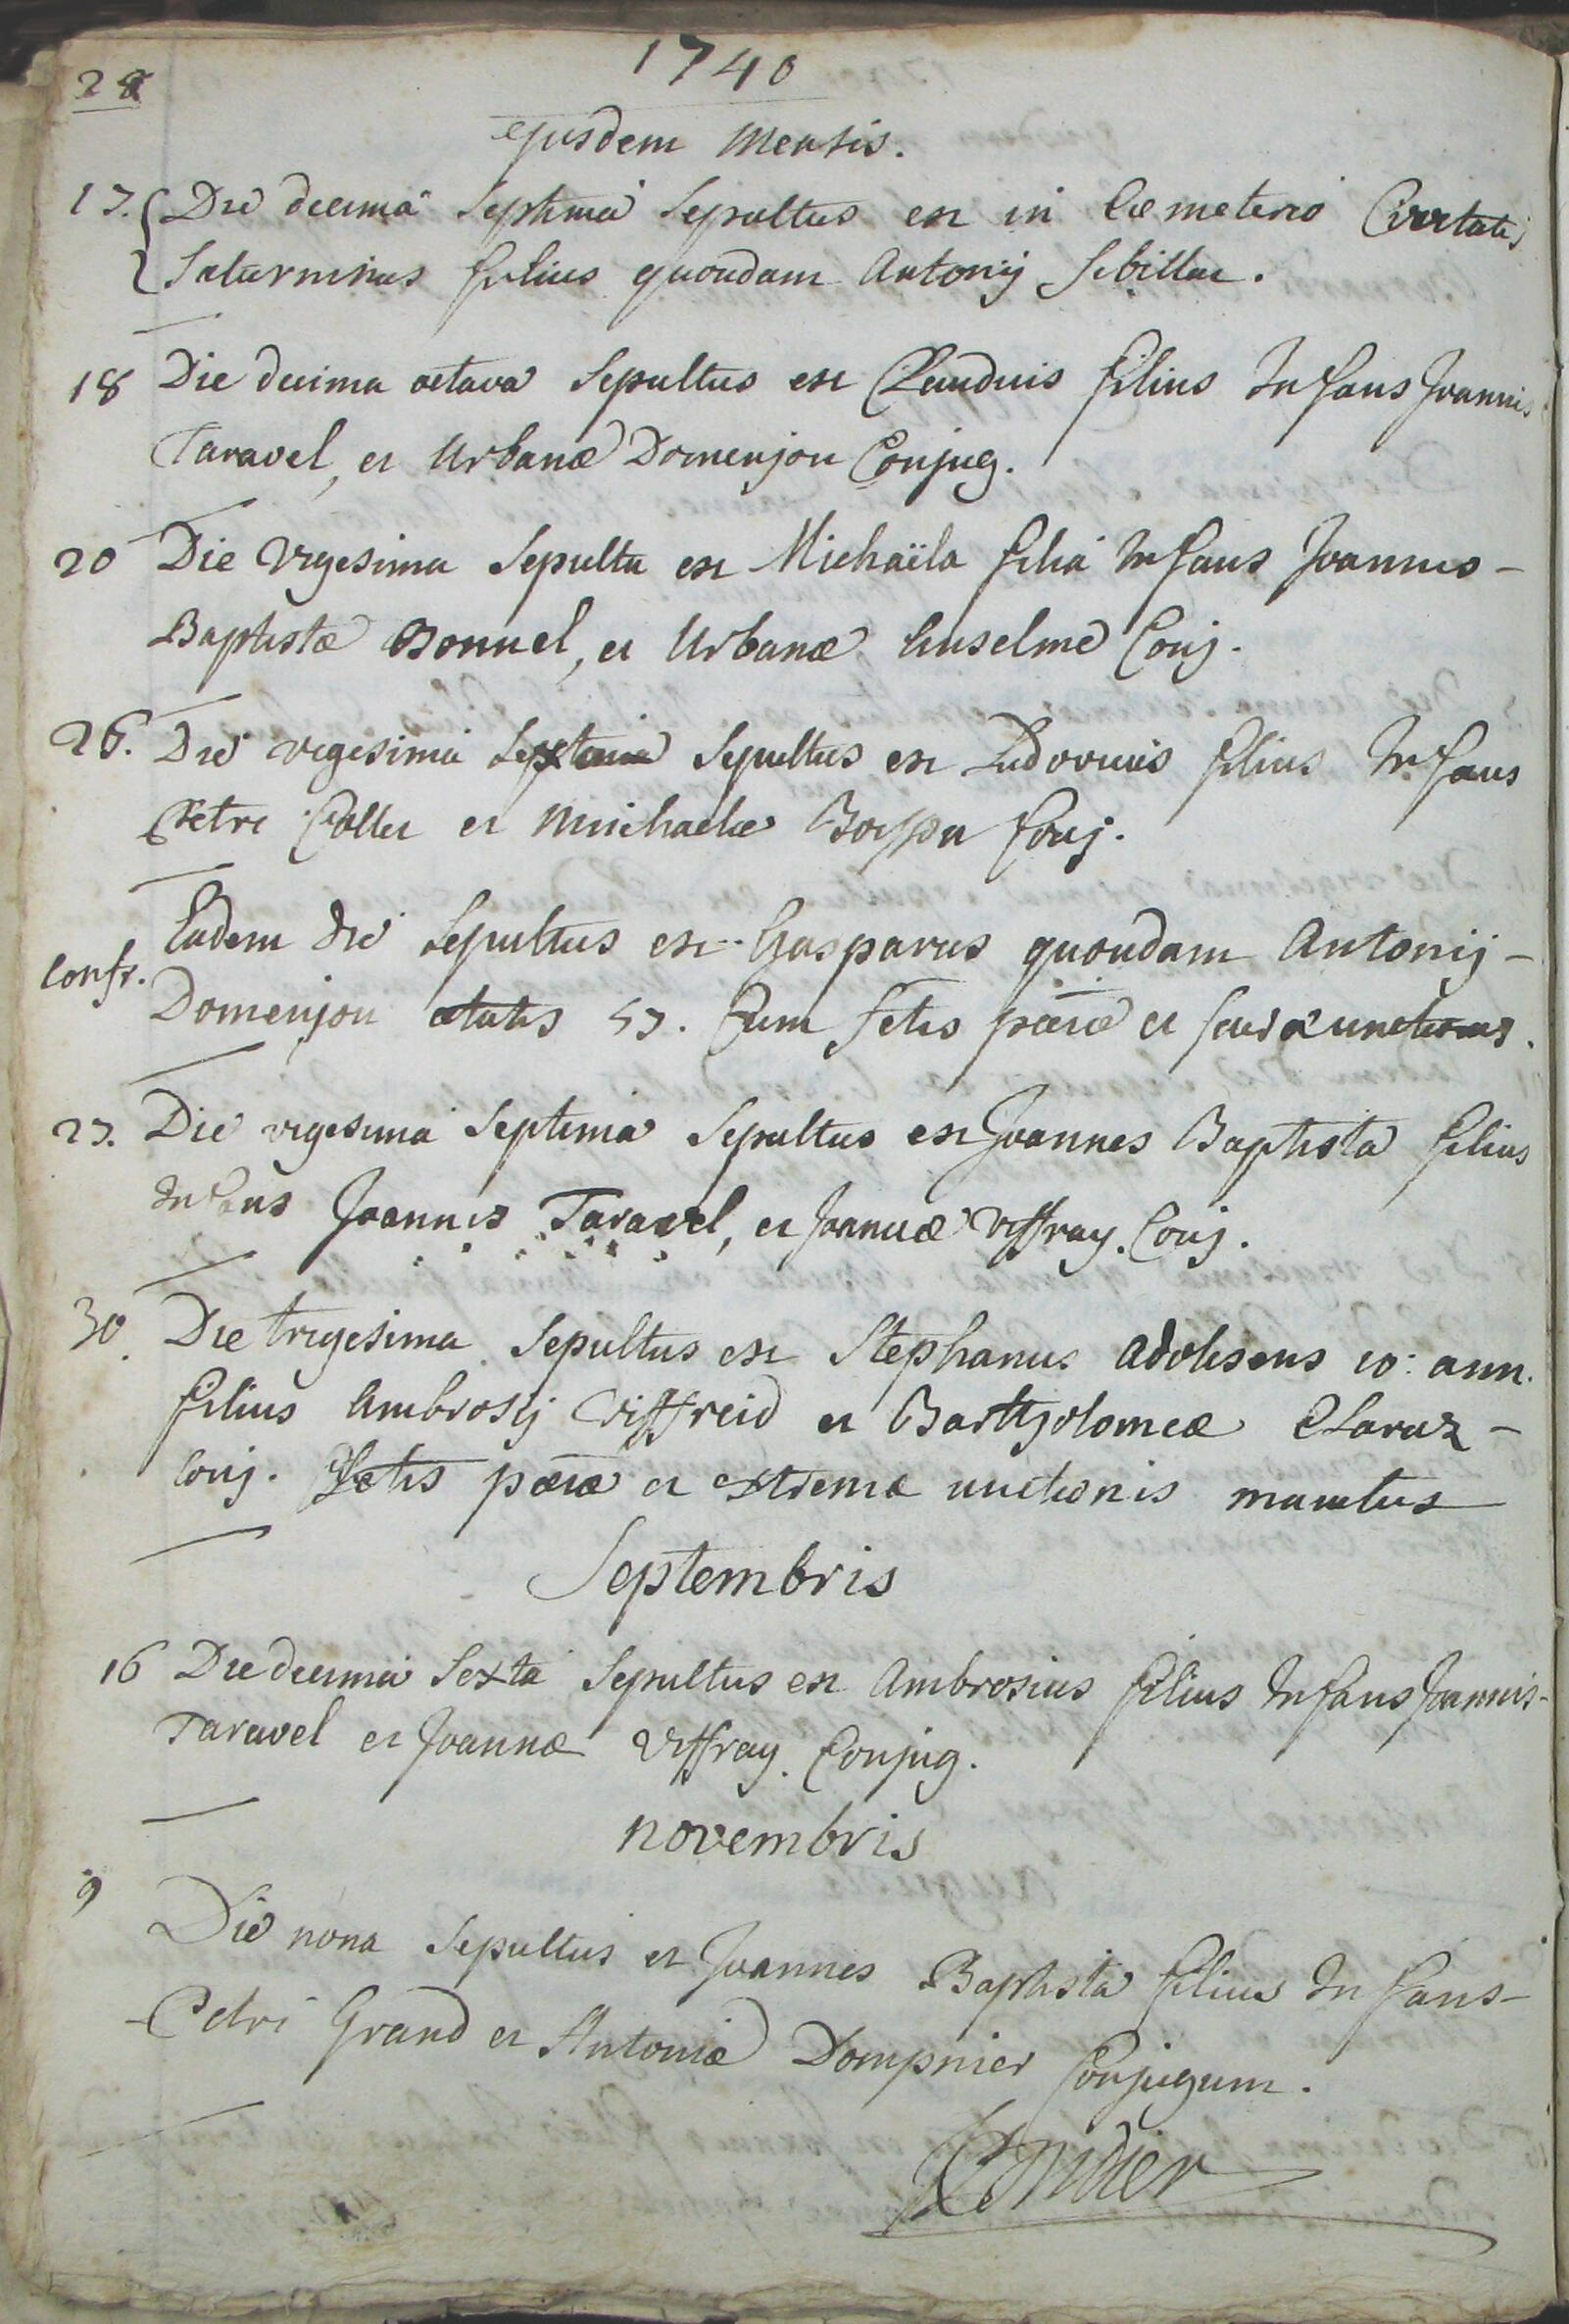 28
1740
ejusdem mensis.
17. Die decima septima sepultus est in Cœmeterio Civitatis
Saturninus filius quondam Antonij Sibillin.
18 Die decima octava sepultus est Claudius filius Infans Joannis
Taravel, et Urbanæ Domenjon Conjug.
20 Die vigesima sepulta est Michaïla filia Infans Joannis-
Baptistæ Bonnel, et Urbanæ Anselme Conj.
26. Die vigesima sexta sepultus est Ludovicus filius Infans
Petri Collet et Michaelæ Conj.
Eadem die sepultus est Gasparus quondam Antonij-
Confr. Domenjon ætatis 57. Cum sctis pœnæ et
27. Die vigesima septima sepultus est Joannes Baptista filius
Infans Joannis Taravel, et Joannæ Viffray. Conj.
30. Die trigesima sepultus est Stephanus adolesens 10: ann.
filius Ambrosij Viffreid et Bartholomeæ Claraz-
Conj. sctis pœnæ et extremæ unctionis munitus
Septembris
16 Die decima sexta sepultus est Ambrosius filius Infans Joannis-
Taravel et Joannæ Viffray. Conjug.
novembris
9
Die nona sepultus et Joannes Baptista filius Infans-
Petri Grand et Antoniæ Dompnier Conjugum.